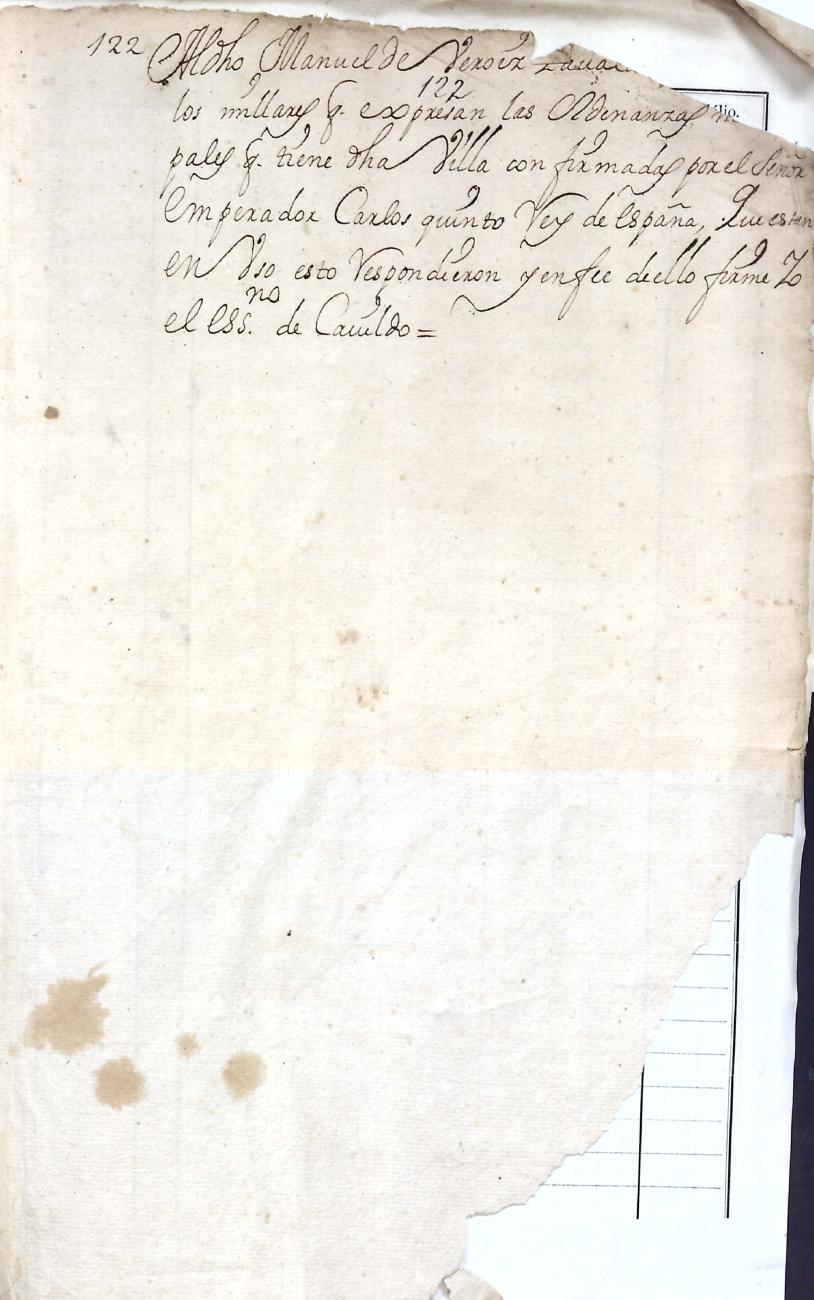 122 Al dho Manuel de
122
los millares q. expresan las Ordenanzas
pales q. tiene dha Villa confirmadas por el Señor
Emperador Carlos quinto Rey de españa, Que estan
en Vso esto Respondieron y en fee de ello firme Yo
el ess.no de Cauildo =